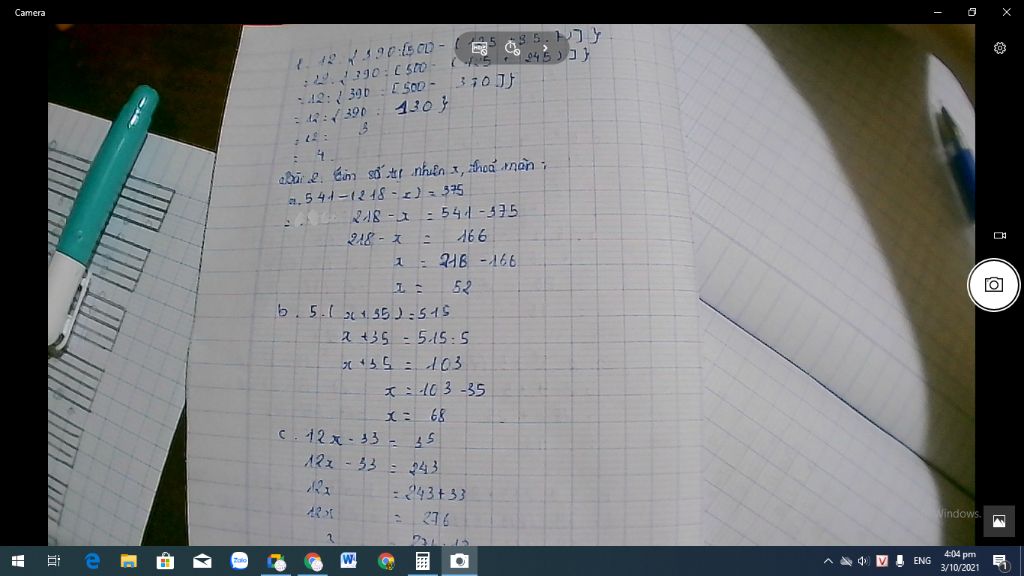 Camera
f. 12:{390:[500-(125+35.7)]}
=12:{390:[500-(125+245)]}
=12:{390:[500-370]}
=12:{390:130}
=12: 3
= 4.
Bài 2. Tìm số tự nhiên x, thoả mãn:
a. 541-(218-x)=375
218-x = 541-375
218-x = 166
x = 218-166
x = 52
b. 5.(x+35)=515
x+35 = 515:5
x+35 = 103
x = 103-35
x = 68
c. 12x-33 = 3⁵
12x-33 = 243
12x = 243+33
12x = 276
x
Windows.
Zalo
V ENG
4:04 pm
3/10/2021